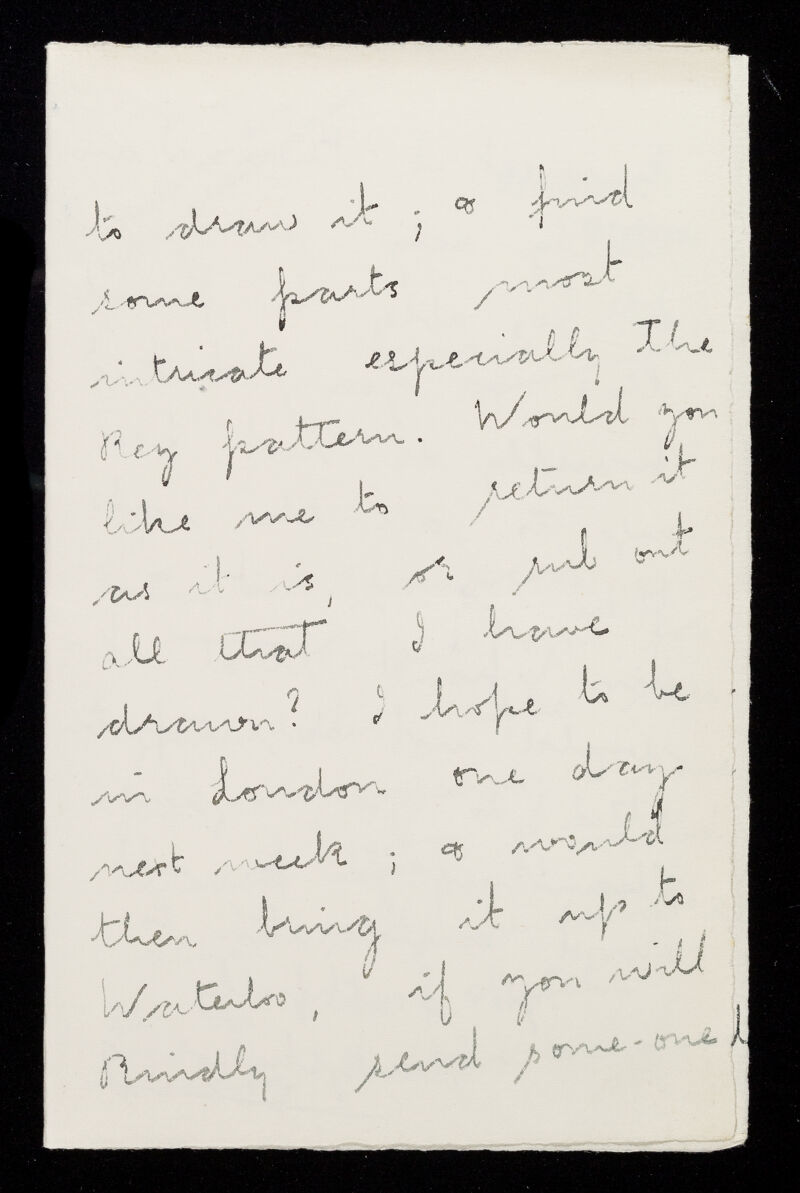 to draw it ; & find
some parts most
intricate especially the
Key pattern. Would you
like me to return it
as it is, or rub out
all that I have
drawn? I hope to be
in London one day
next week ; & would
then bring it up to
Waterloo, if you will
Kindly send some-one